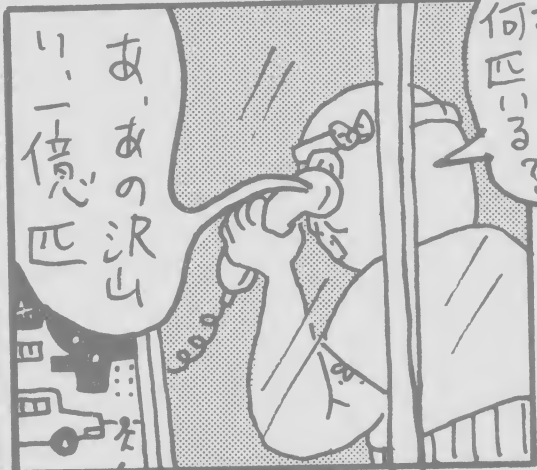 何匹いるで
あ、あの沢山
り、一億匹